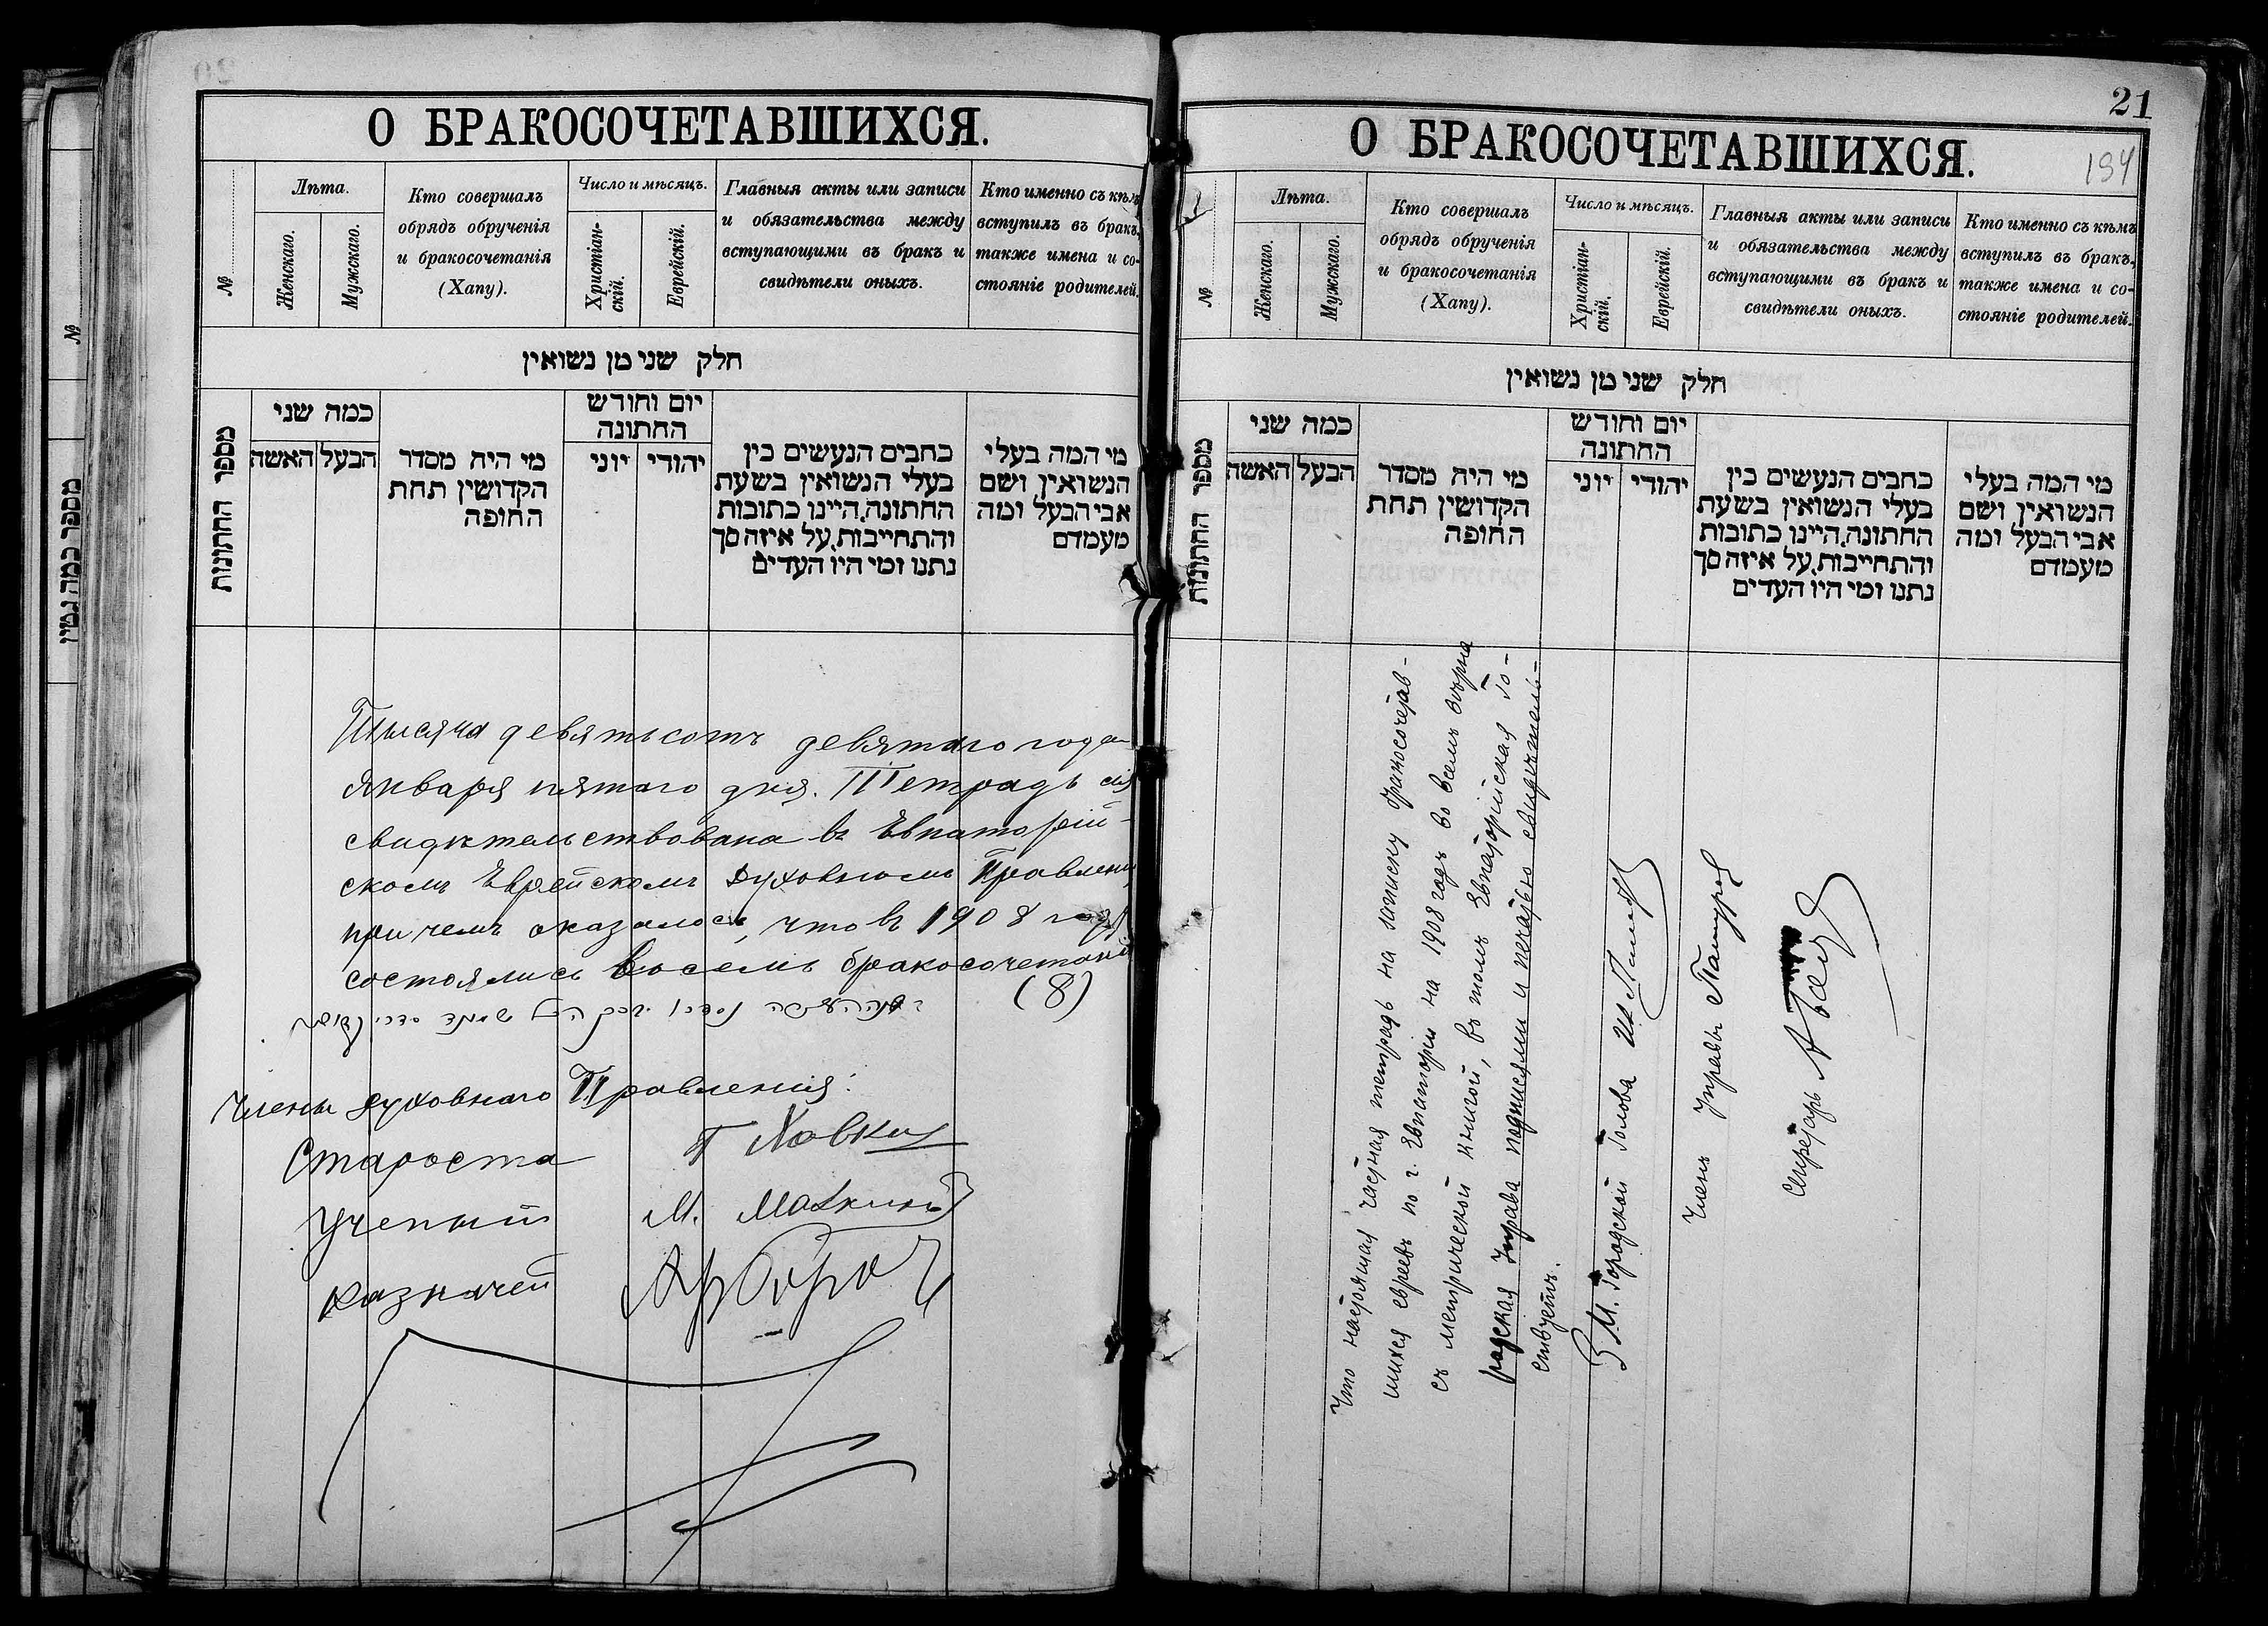 О БРАКОСОЧЕТАВШИХСЯ.
№
Лѣта.
Женскаго.
Мужскаго.
Кто совершалъ
обрядъ обрученія
и бракосочетанія
(Хапу).
Число и мѣсяцъ.
Христіан-
скій.
Еврейскій.
Главныя акты или записи
и обязательства между
вступающими въ бракъ и
свидѣтели оныхъ.
Кто именно съ кѣмъ
вступилъ въ бракъ,
также имена и со-
стояніе родителей.
חלק שני מן נשואין
מספר החתונות
כמה שני
הבעל
האשה
מי היה מסדר
הקדושין תחת
החופה
יום וחודש
החתונה
יהודי
יוני
כתבים הנעשים בין
בעלי הנשואין בשעת
החתונה, היינו כתובות
והתחייבות, על איזה סך
נתנו ומי היו העדים
מי המה בעלי
הנשואין ושם
אבי הבעל ומה
מעמדם
Тысяча девятьсотъ девятаго года
Января пятаго дня. Тетрадь сія
свидѣтельствована въ Евпаторій-
скомъ Еврейскомъ Духовномъ Правленіи,
при чемъ оказалось, что въ 1908 году
состоялись восемь бракосочетаній
(8)
Члены Духовнаго Правленія:
Староста
Ученый М.
Казначей
21
194
О БРАКОСОЧЕТАВШИХСЯ.
№
Лѣта.
Женскаго.
Мужскаго.
Кто совершалъ
обрядъ обрученія
и бракосочетанія
(Хапу).
Число и мѣсяцъ.
Христіан-
скій.
Еврейскій.
Главныя акты или записи
и обязательства между
вступающими въ бракъ и
свидѣтели оныхъ.
Кто именно съ кѣмъ
вступилъ въ бракъ,
также имена и со-
стояніе родителей.
חלק שני מן נשואין
מספר החתונות
כמה שני
הבעל
האשה
מי היה מסדר
הקדושין תחת
החופה
יום וחודש
החתונה
יהודי
יוני
כתבים הנעשים בין
בעלי הנשואין בשעת
החתונה, היינו כתובות
והתחייבות, על איזה סך
נתנו ומי היו העדים
מי המה בעלי
הנשואין ושם
אבי הבעל ומה
מעמדם
Что настоящая частная тетрадь на записку бракосочетав-
шихся евреевъ по г. Евпаторіи на 1908 годъ во всемъ вѣрна
съ метрической книгой, въ томъ Евпаторійская Го-
родская Управа подписями и печатью свидѣтель-
ствуетъ.
З. М. Городской Голова
Членъ Управы
Секретарь